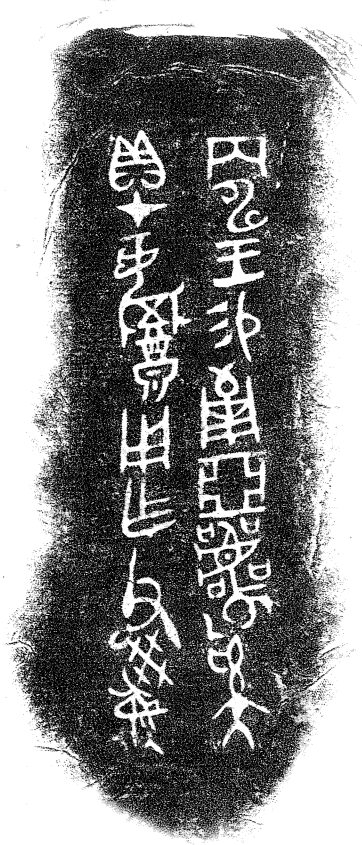 丙申王易𤰈亞囂奚
貝才𣝣用乍父癸彝